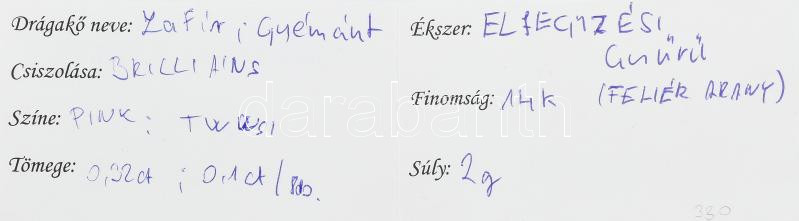 Drágakő neve: Zafír ; Gyémánt
Csiszolása: BRILLIÁNS
Színe: PINK ; TW
Tömege: 0,32ct ; 0,1ct / db.
Ékszer: ELJEGYZÉSI
Gyűrű
Finomság: 14k (FEHÉR ARANY)
Súly: 2g
330
darabanth